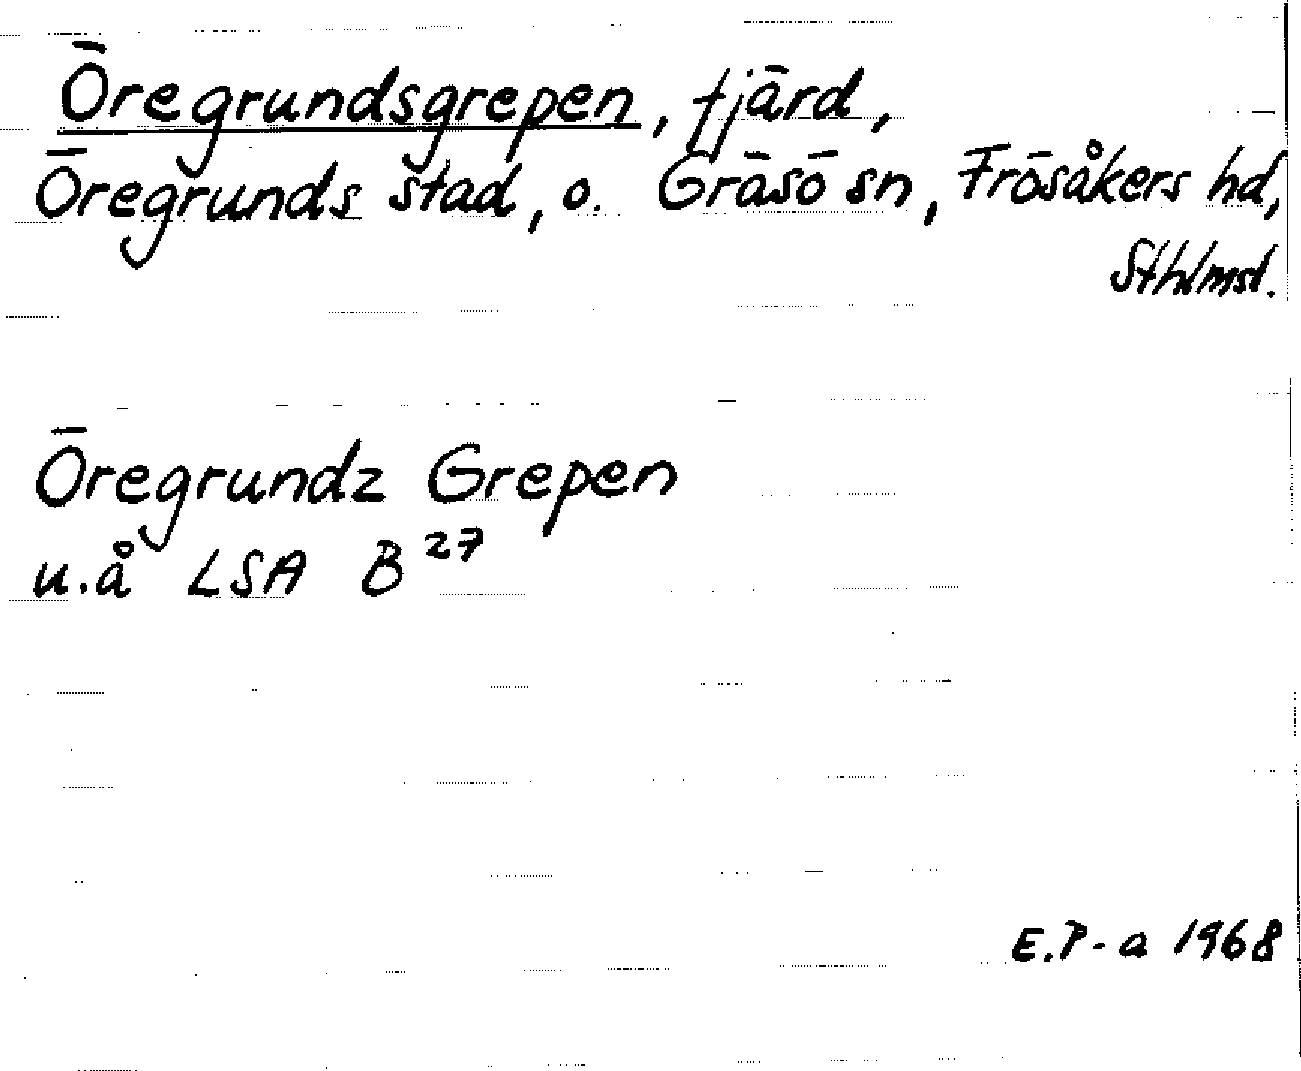 Öregrundsgrepen, fjärd,
Öregrunds stad, o. Gräsö sn, Frösåkers hd,
Sthlmsl.
Öregrundz Grepen
u.å LSA B 27
E.P-a 1968